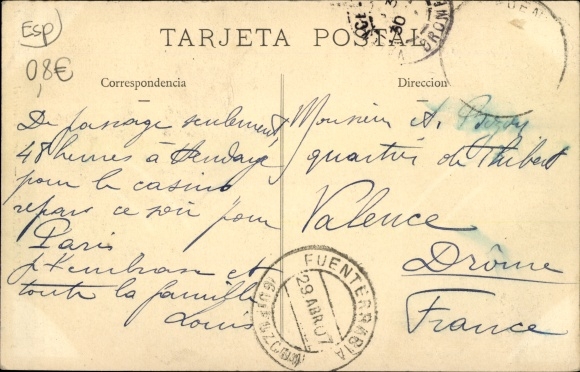 Esp
0,8€
TARJETA POSTAL
Correspondencia
Direccion
De passage seulement
48 heures à Hendaye
pour le casino
repars ce soir pour
Paris
j't'embrasse et
toute la famille
Louis
Monsieur A.
quartier de Thibert
Valence
Drôme
France
FUENTERRABIA
29 ABR 07
(GUIPUZCOA)